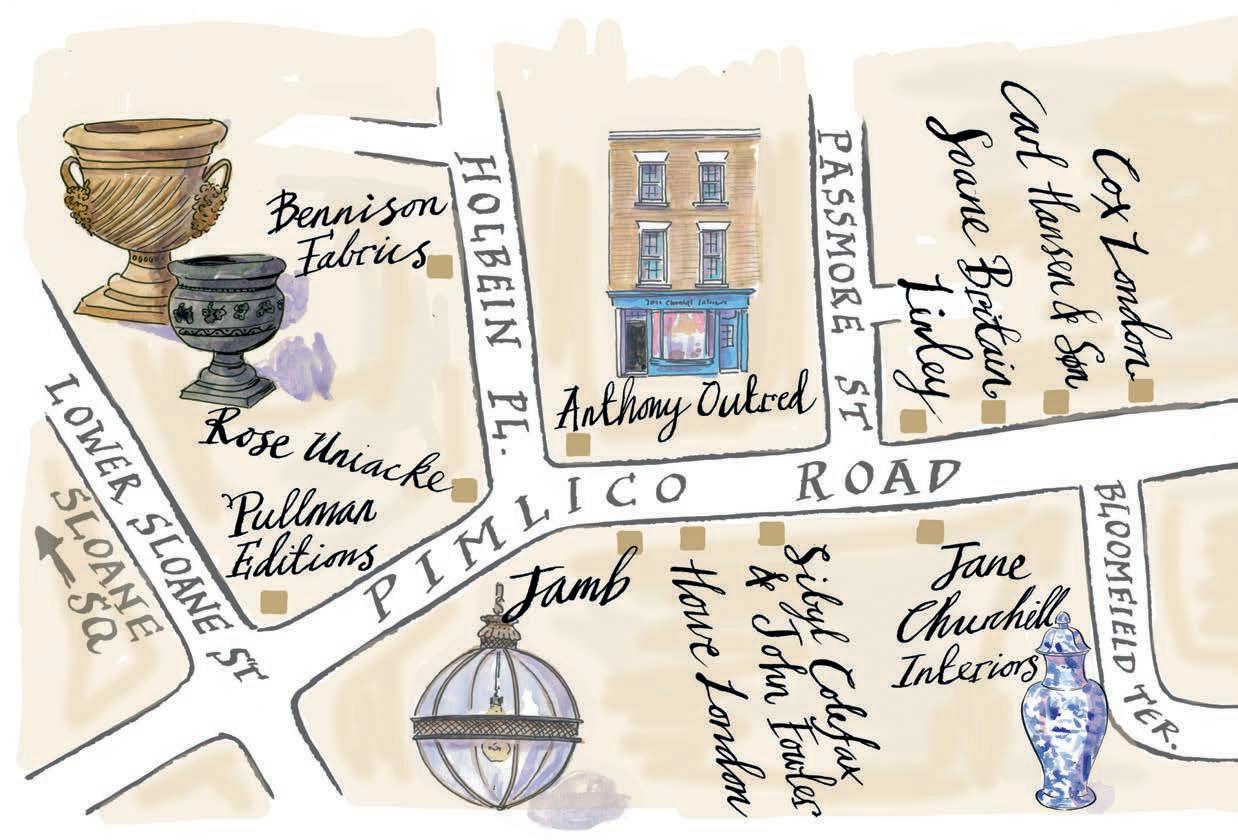 Bennison
Fabrics
HOLBEIN PL.
PASSMORE ST
Cox London
Carl Hansen & Son
Soane Britain
Linley
Jane Churchill Interiors
Anthony Outred
LOWER SLOANE ST
SLOANE
SQ
Rose Uniacke
Pullman
Editions
PIMLICO ROAD
BLOOMFIELD TER.
Jamb
Howe London
Sibyl Colefax
& John Fowler
Jane
Churchill
Interiors